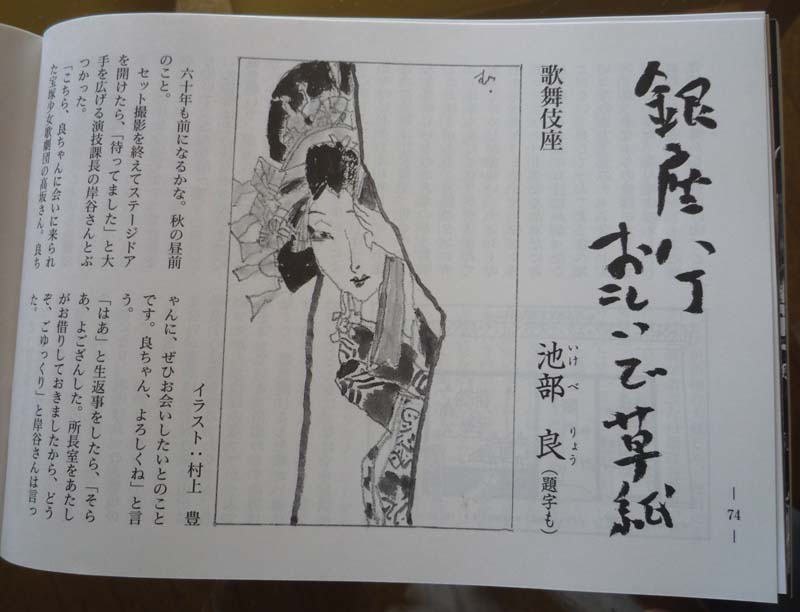 銀座八丁
おもいで草紙
池部 良(題字も)
いけ べ りょう
歌舞伎座
む.
イラスト：村上 豊
六十年も前になるかな。秋の昼前
のこと。
セット撮影を終えてステージドア
を開けたら、「待ってました」と大
手を広げる演技課長の岸谷さんとぶ
つかった。
「こちら、良ちゃんに会いに来られ
た宝塚少女歌劇団の高坂さん。良ち
ゃんに、ぜひお会いしたいとのこと
です。良ちゃん、よろしくね」と言
う。
「はあ」と生返事をしたら、「そら
あ、よござんした。所長室をあたし
がお借りしておきましたから、どう
ぞ、ごゆっくり」と岸谷さんは言っ
た。
— 74 —